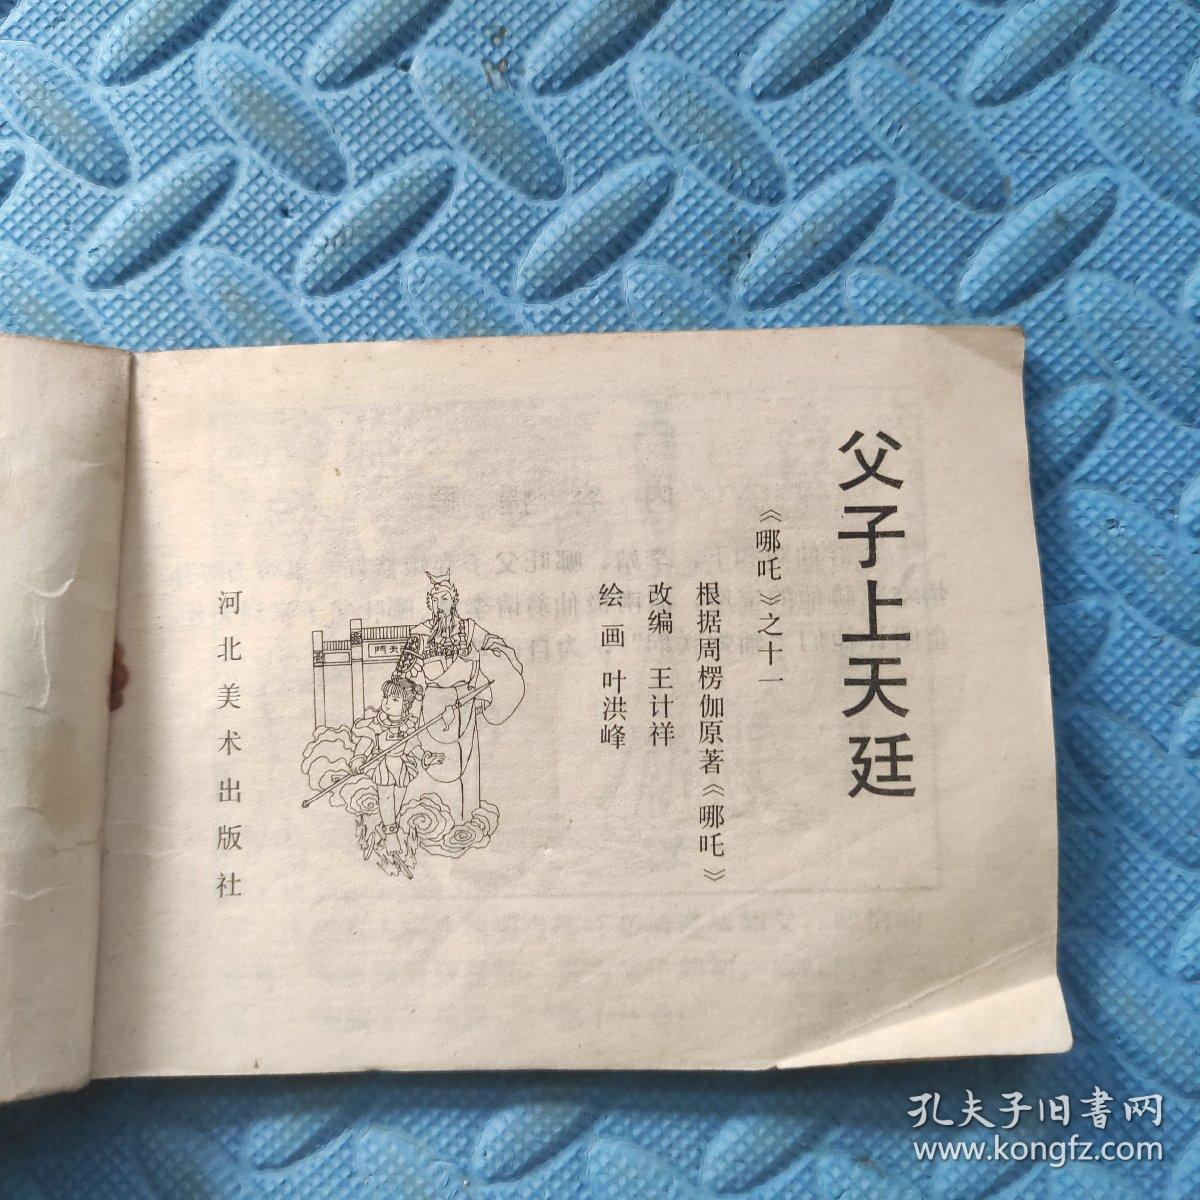 父子上天廷
《哪吒》之十一
根据周楞伽原著《哪吒》
改编 王计祥
绘画 叶洪峰
天門
河北美术出版社
孔夫子旧书网
www.kongfz.com